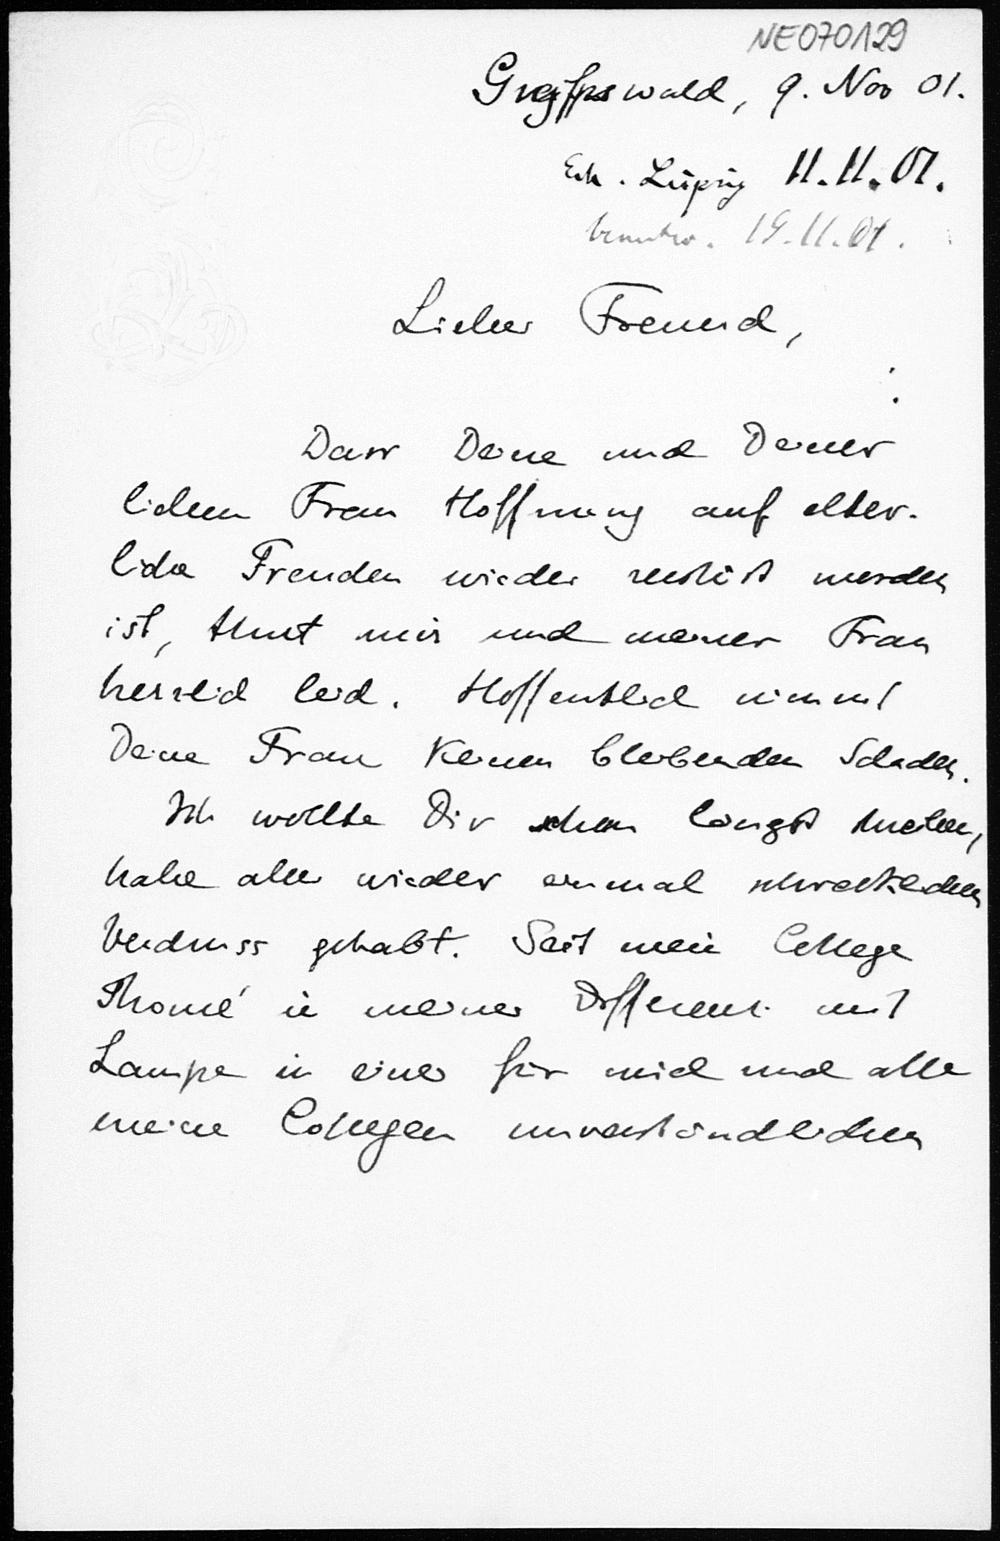 NE070129
Greifswald, 9. Nov 01.
Erh. Leipzig 11.11.01.
beantw. 19.11.01.
Lieber Freund,
Dass Deine und Deiner
lieben Frau Hoffnung auf elter-
liche Freuden wieder zerstört worden
ist, thut mir und meiner Frau
herzlich leid. Hoffentlich nimmt
Deine Frau keinen bleibenden Schaden.
Ich wollte Dir schon längst schreiben,
habe aber wieder einmal schrecklichen
Verdruss gehabt. Seit mein College
Thomé in meiner Differenz mit
Lampe in einer für mich und alle
meine Collegen unverständlichen